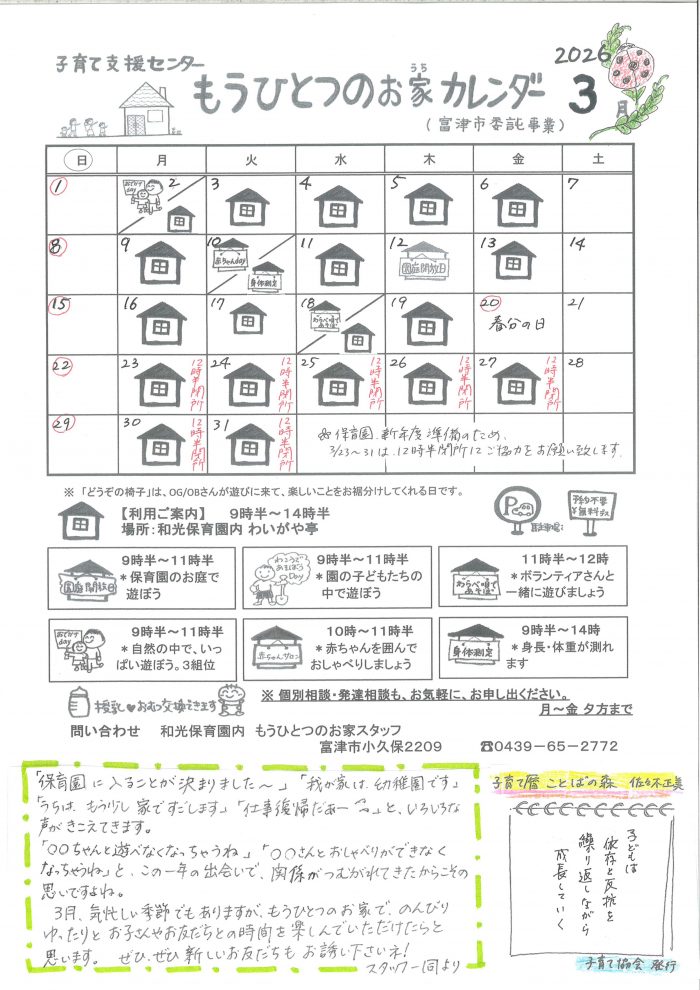 子育て支援センター
もうひとつのお家カレンダー
うち
2026
3月
(富津市委託事業)
日 月 火 水 木 金 土
1 2 3 4 5 6 7
おでかけday
8 9 10 11 12 13 14
赤ちゃんday
身体測定
園庭開放日
15 16 17 18 19 20 21
わらべ唄であそぼ
春分の日
22 23 24 25 26 27 28
12時半閉所 12時半閉所 12時半閉所 12時半閉所 12時半閉所
29 30 31
12時半閉所 12時半閉所
※保育園、新年度準備のため、
3/23〜31は、12時半閉所にご協力をお願い致します。
※「どうぞの椅子」は、OG/OBさんが遊びに来て、楽しいことをお裾分けしてくれる日です。
【利用ご案内】 9時半〜14時半
場所:和光保育園内 わいがや亭
P
駐車場
予約不要
無料デス
園庭開放日
9時半〜11時半
*保育園のお庭で
遊ぼう
わこうであそぼうDay
9時半〜11時半
*園の子どもたちの
中で遊ぼう
わらべ唄であそぼ
11時半〜12時
*ボランティアさんと
一緒に遊びましょう
おでかけday
9時半〜11時半
*自然の中で、いっ
ぱい遊ぼう。3組位
赤ちゃんサロン
10時〜11時半
*赤ちゃんを囲んで
おしゃべりしましょう
身体測定
9時半〜14時
*身長・体重が測れ
ます
授乳♥おむつ交換できます
※ 個別相談・発達相談も、お気軽に、お申し出ください。
月〜金 夕方まで
問い合わせ 和光保育園内 もうひとつのお家スタッフ
富津市小久保2209 ☎0439-65-2772
「保育園に入ることが決まりました〜」「我が家は、幼稚園です」
「うちは、もう少し家ですごします」「仕事復帰だあー」と、いろいろな
声がきこえてきます。
「〇〇ちゃんと遊べなくなっちゃうね」「〇〇さんとおしゃべりができなく
なっちゃうね」と、この一年の出会いで、関係がつむがれてきたからこその
思いですよね。
3月、気忙しい季節でもありますが、もうひとつのお家で、のんびり
ゆったりとお子さんやお友だちとの時間を楽しんでいただけたらと
思います。 ぜひ、ぜひ新しいお友だちもお誘い下さいネ!
スタッフ一同より
子育て暦 ことばの森 佐々木正美
子どもは
依存と反抗を
繰り返しながら
成長していく
子育て協会 発行